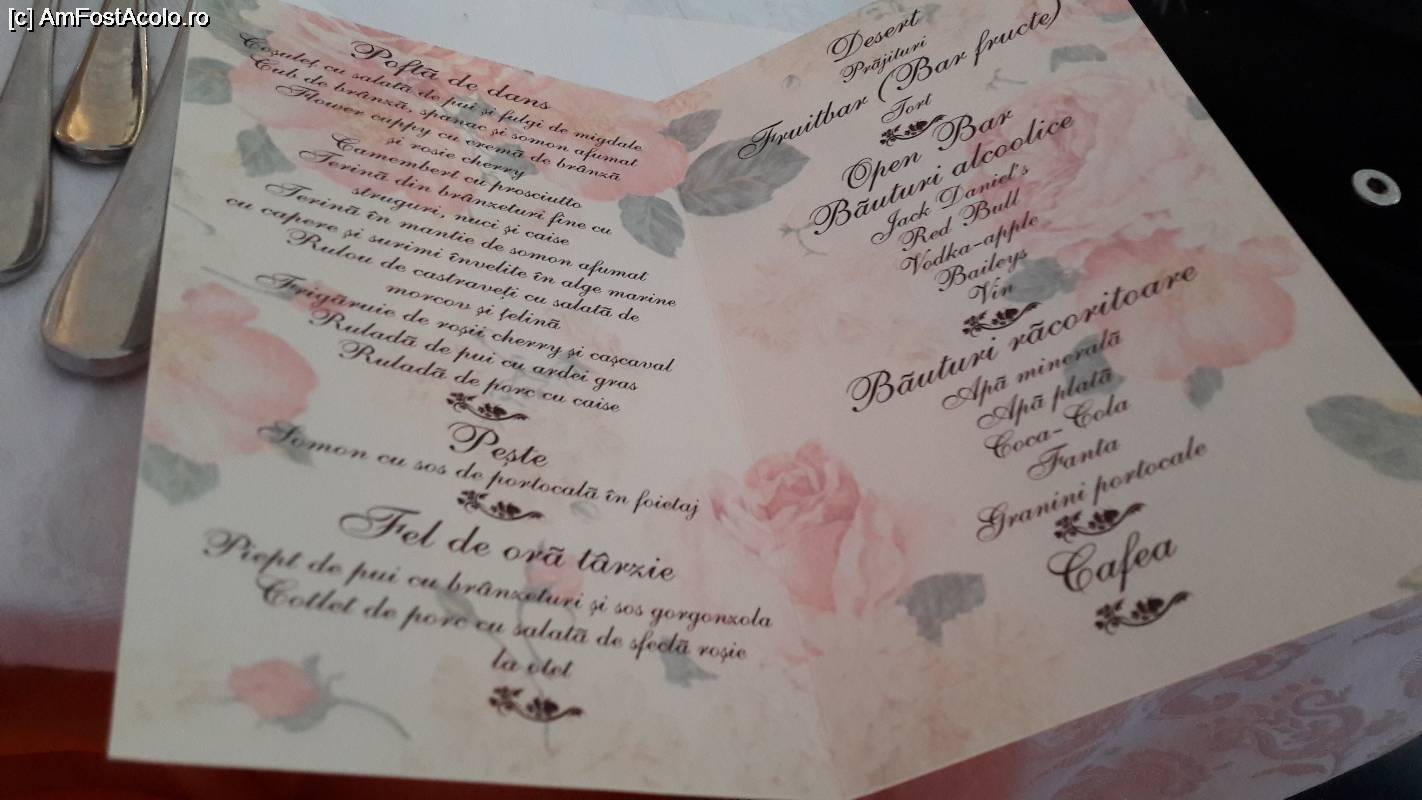 [c] AmFostAcolo.ro
Poftă de dans
Coșuleț cu salată de pui și fulgi de migdale
Cub de brânză, spanac și somon afumat
Flower cuppy cu cremă de brânză
și rosie cherry
Camembert cu prosciutto
Terină din brânzeturi fine cu
struguri, nuci și caise
Terină în mantie de somon afumat
cu capere și surimi învelite în alge marine
Rulou de castraveți cu salată de
morcov și țelină
Frigăruie de roșii cherry și cașcaval
Ruladă de pui cu ardei gras
Ruladă de porc cu caise
Pește
Somon cu sos de portocală în foietaj
Fel de oră târzie
Piept de pui cu brânzeturi și sos gorgonzola
Cotlet de porc cu salată de sfeclă roșie
la otet
Desert
Prăjituri
Fruitbar (Bar fructe)
Tort
Open Bar
Băuturi alcoolice
Jack Daniel's
Red Bull
Vodka-apple
Baileys
Vin
Băuturi răcoritoare
Apă minerală
Apă plată
Coca-Cola
Fanta
Granini portocale
Cafea